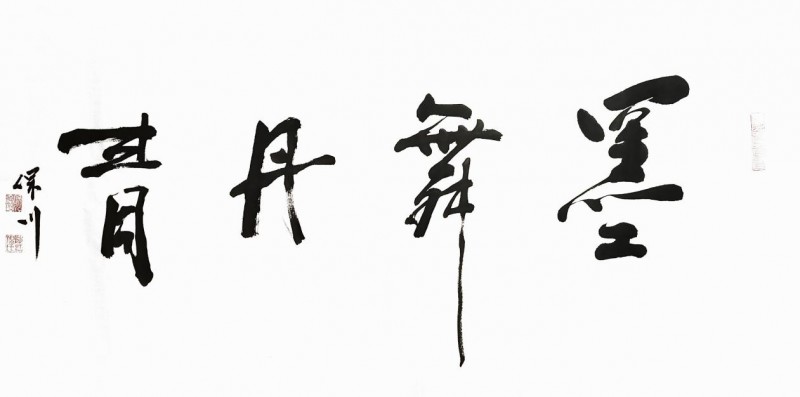 墨舞丹青
保川